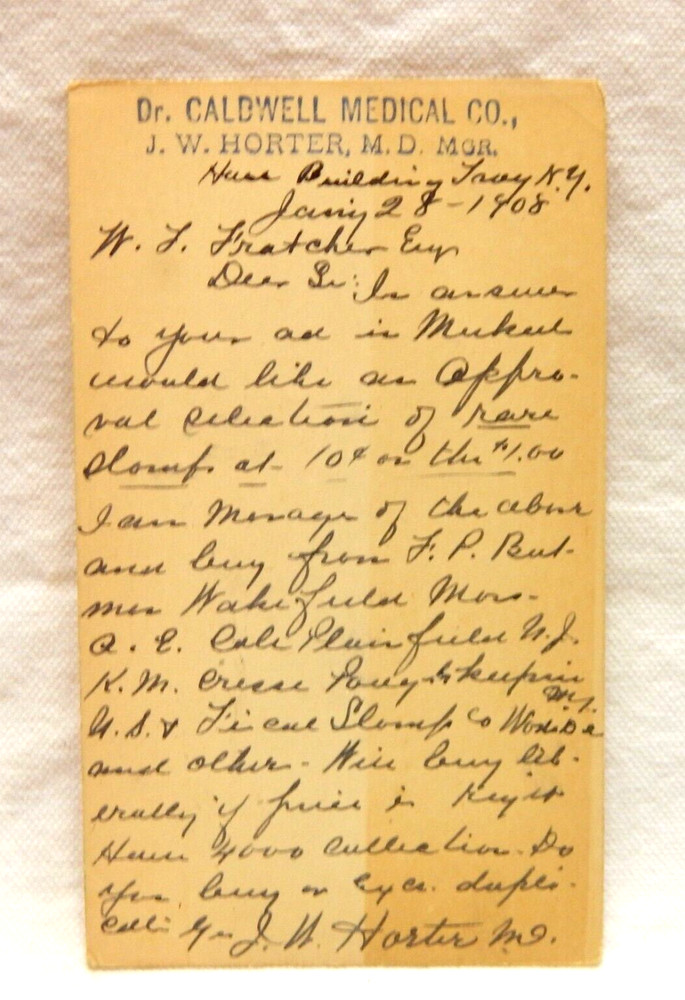 Dr. CALDWELL MEDICAL CO.,
J. W. HORTER, M.D. MGR.
Building Troy N.Y.
Jany 28-1908
W. F. Fratcher Esq
Dear Sir: In answer
to your ad in Mekeel
would like an appro-
val selection of rare
stamps at 10¢ on the $1.00
I am Manager of the above
and buy from F. P. Bat-
mer Wakefield Mass-
A. E. Cole Plainfield N.J.
K.M. Cresse Poughkeepsie
N.Y.
U.S. & Fiscal Stamp Co
and other- Will buy lib-
erally if price is right
Have 4000 collection- Do
you buy or exch. dupli-
cate J. W. Horter MD.